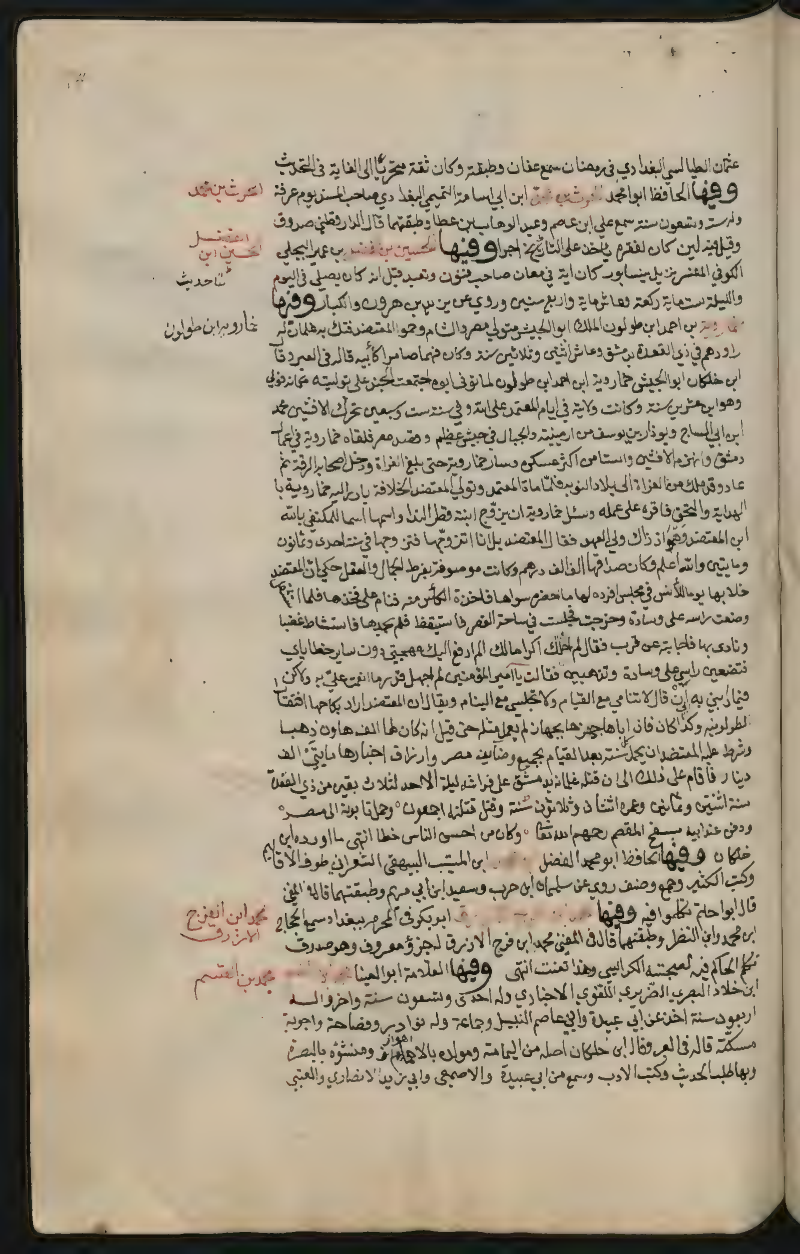 عثمان الطيالسي البغدادي في رمضان سمع عفان وطبقته وكان ثقة متحريا الى الغاية في التحديث
وفيها الحافظ ابو محمد ابن ابي اسامة التميمي البغدادي صاحب المسند يوم عرفة
الحرث بن محمد
وله ست وتسعون سنة سمع علي ابن عاصم وعبد الوهاب بن عطا وطبقتهما قال الدارقطني صدوق
وقيل فيه لين كان لفقره ياخذ على التاريخ اجرا وفيها الحسين بن الفضل بن عمير البجلي
الفضل
الحسين ابن
الكوفي المفسر نزيل نيسابور كان اية في معاني صاحب فنون وتعبد قيل انه كان يصلي في اليوم
والليلة ستماية ركعة وعاش ماية واربع سنين وروي عن يزيد بن هرون والكبار وفيها
خمارويه بن احمد ابن طولون الملك ابو الجيش متولي مصر والشام وحمو المعتضد فتك به غلمان له
خمارويه ابن طولون
راودهم في ذي القعدة بدمشق وعاش اثنتين وثلاثين سنة وكان شهما صارما كابيه قاله في العبر وقال
ابن خلكان ابو الجيش خمارويه ابن احمد ابن طولون لما توفي ابوه اجتمعت الجند على توليته مكانه فولي
وهو ابن عشرين سنة وكانت ولاية في ايام المعتمد على الله وفي سنة ست وسبعين تحرك الافشين محمد
ابن ابي الساج ويوذار بن يوسف من ارمينية والجبال في جيش عظيم وقصد مصر فلقاه خمارويه في اعمال
دمشق وانهزم الافشين واستامن اكثر عسكره وسار خمارويه حتى بلغ الفراة ودخل اصحابه الرقة ثم
عاد وقد ملك من الفراة الى بلاد النوبه فلما مات المعتمد وتولي المعتضد الخلافة بادر اليه خمارويه با
الهداية والتحف فاقره على عمله وسئل خمارويه ان يزوج ابنة قطر الندا واسمها اسما للمكتفي بالله
ابن المعتضد وهو اذ ذاك ولي العهد فقال المعتضد بل انا اتزوجها فتزوجها في سنة احدى وثمانون
ومايتين والله اعلم وكان صداقها الف الف درهم وكانت موصوفة بفرط الجمال والعقل حكي ان المعتضد
خلا بها يوما للأنس في مجلس افرده لها ما حضره سواها فاخذة الكأس منه فنام على فخذها فلما
وضعت راسه على وسادة وخرجت فجلست في ساحة القصر فاستيقظ فلم يجدها فاستشاط غضبا
ونادى بها فاجابته عن قرب فقال الم اخلك اكراما لك الم ادفع اليك مهجتي دون ساير حظاياي
فتضعين راسي على وسادة وتذهبين فقالت يا امير المؤمنين لم اجهل قدر ما انعمت علي به ولكن
فيما ادبني به ابي ان قال لا تنامي مع القيام ولا تجلسي مع النيام ويقال ان المعتضد اراد بنكاحها افتقار
الطولونيه وكذا كان فان اباها جهزها بجهاز لم يعمل مثله حتى قيل انه كان لها الف هاون ذهبا
وشرط عليه المعتضد ان يحمل كل سنة بعد القيام بجميع وضايف مصر وارزاق اجنادها مايتي الف
دينار فاقام على ذلك الى ان قتله غلمانه بدمشق على فراشه ليلة الاحد لثلاث بقين من ذي القعدة
سنة اثنتين وثمانين وعمره اثنتان وثلاثون سنة وقتل قتلته اجمعون وحمل تابوته الى مصر
ودفن عند ابيه بسفح المقطم رحمهم الله تعالى وكان من احسن الناس خطا انتهى ما اورده ابن
خلكان وفيها الحافظ ابو محمد الفضل ابن المسيب البيهقي الشعراني طوف الاقاليم
وكتب الكثير وجمع وصنف روي عن سليمان ابن حرب وسعيد ابن ابي مريم وطبقتهما قاله في
قال ابو حاتم تكلموا فيه وفيها ابو بكر في المحرم ببغداد سمع الحجاج
محمد ابن الفرج
الازرق
ابن محمد وابي النضر وطبقتهما قال في المغني محمد ابن فرج الازرق له جزؤ معروف وهو صدوق
تكلم الحاكم فيه لصحبته الكرابيسي وهذا تعنت انتهى وفيها العلامة ابو العينا
محمد بن القسم
ابن خلاد البصري الضرير اللغوي الاخباري وله احدى وتسعون سنة واضر وله
اربعون سنة اخذ عن ابي عبيدة وابي عاصم النبيل وجماعة وله نوادر وفصاحة واجوبة
مسكتة قاله في العبر وقال ابن خلكان اصله من اليمامة ومولده بالاهواز ومنشؤه بالبصرة
اهواز
وبها طلب الحديث وكتب الادب وسمع من ابي عبيدة والاصمعي وابي زيد الانصاري والعتبي